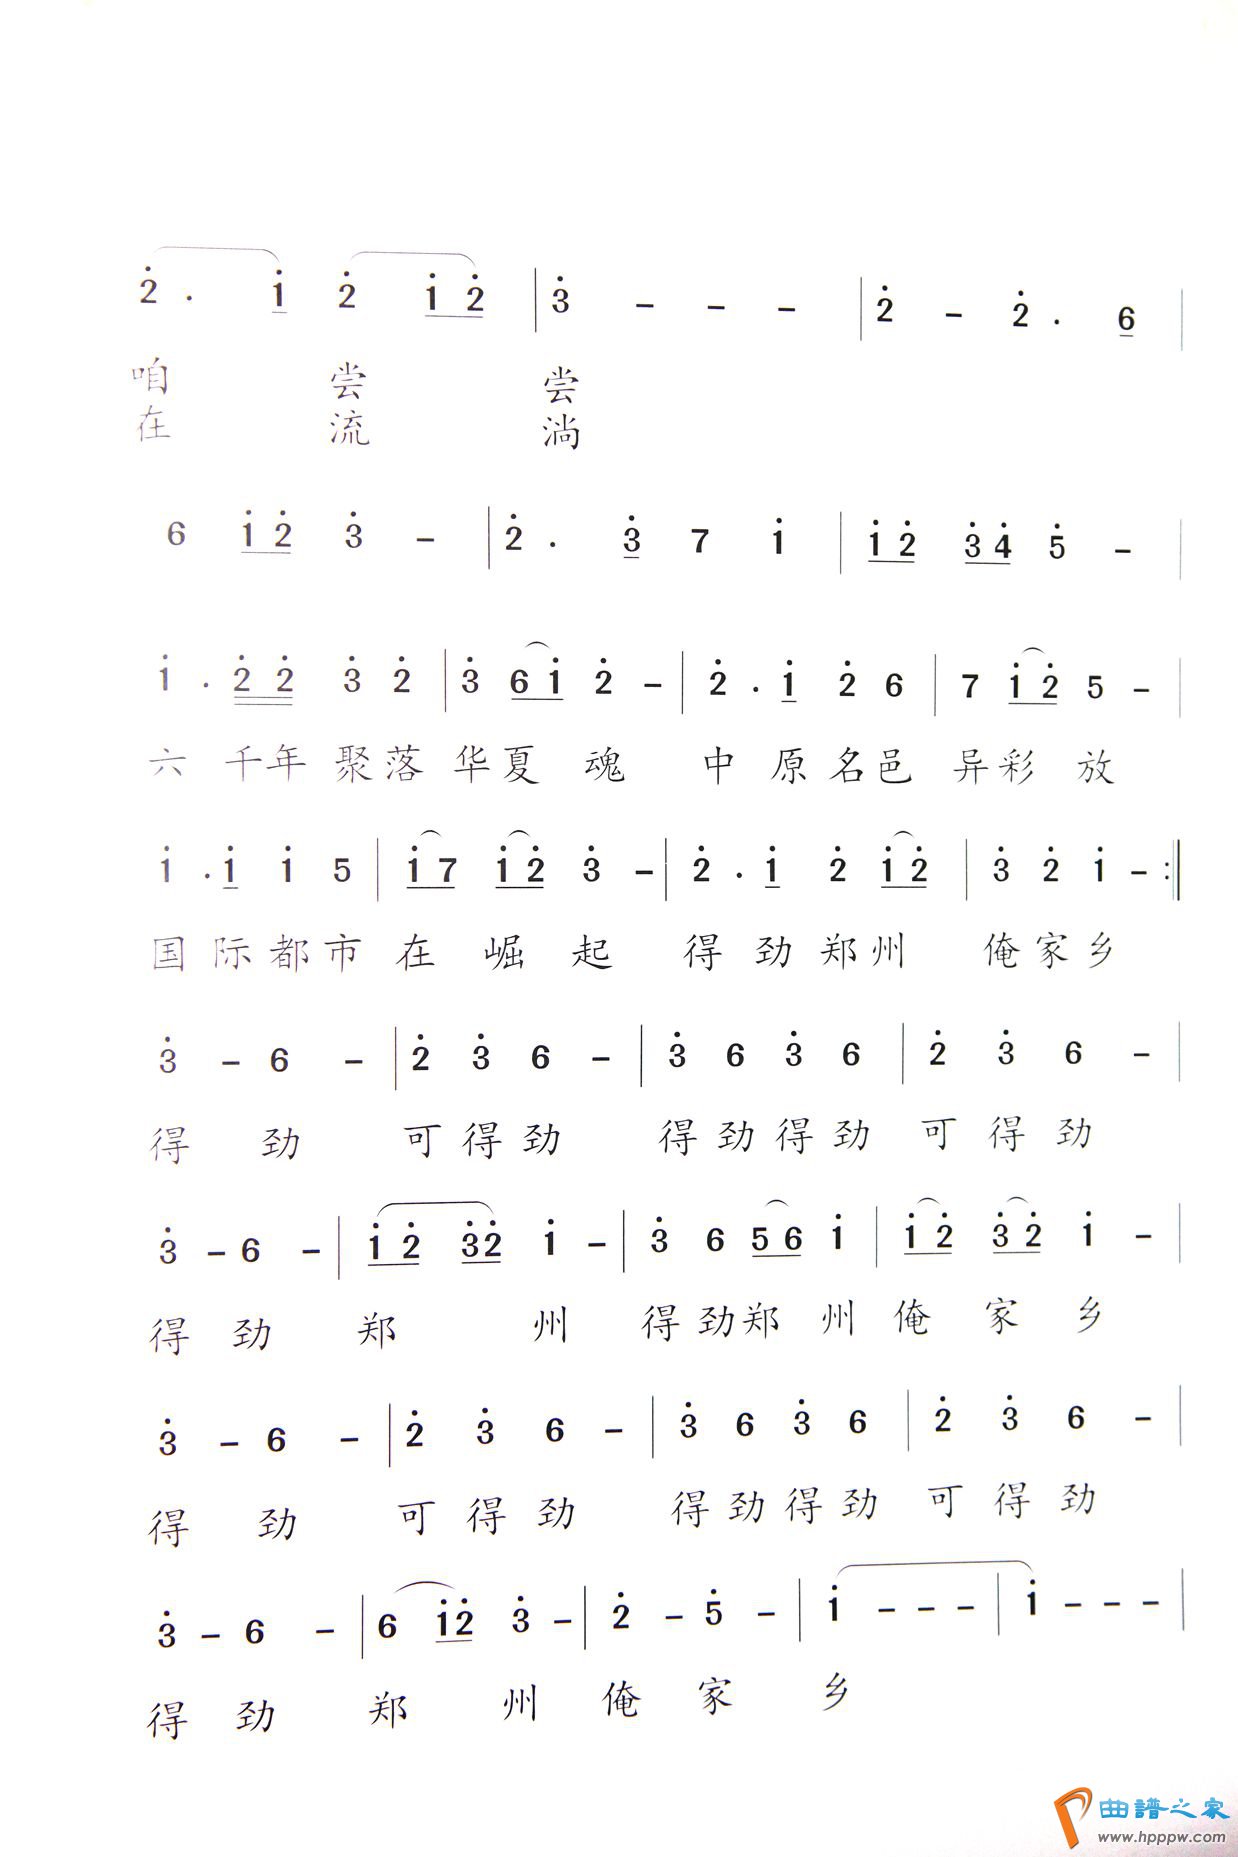 2 . 1 2 1 2 | 3 - - - | 2 - 2 . 6 |
咱 尝 尝
在 流 淌
6 1 2 3 - | 2 . 3 7 1 | 1 2 3 4 5 - |
1 . 2 2 3 2 | 3 6 1 2 - | 2 . 1 2 6 | 7 1 2 5 - |
六 千年 聚落 华夏 魂 中 原 名邑 异彩 放
1 . 1 1 5 | 1 7 1 2 3 - | 2 . 1 2 1 2 | 3 2 1 - :|
国 际 都 市 在 崛 起 得 劲 郑州 俺家乡
3 - 6 - | 2 3 6 - | 3 6 3 6 | 2 3 6 - |
得 劲 可得劲 得劲得劲 可得劲
3 - 6 - | 1 2 3 2 1 - | 3 6 5 6 1 | 1 2 3 2 1 - |
得 劲 郑 州 得劲郑 州 俺 家 乡
3 - 6 - | 2 3 6 - | 3 6 3 6 | 2 3 6 - |
得 劲 可得劲 得劲得劲 可得劲
3 - 6 - | 6 1 2 3 - | 2 - 5 - | 1 - - - | 1 - - - |
得 劲 郑 州 俺 家 乡
曲谱之家
www.hpppw.com